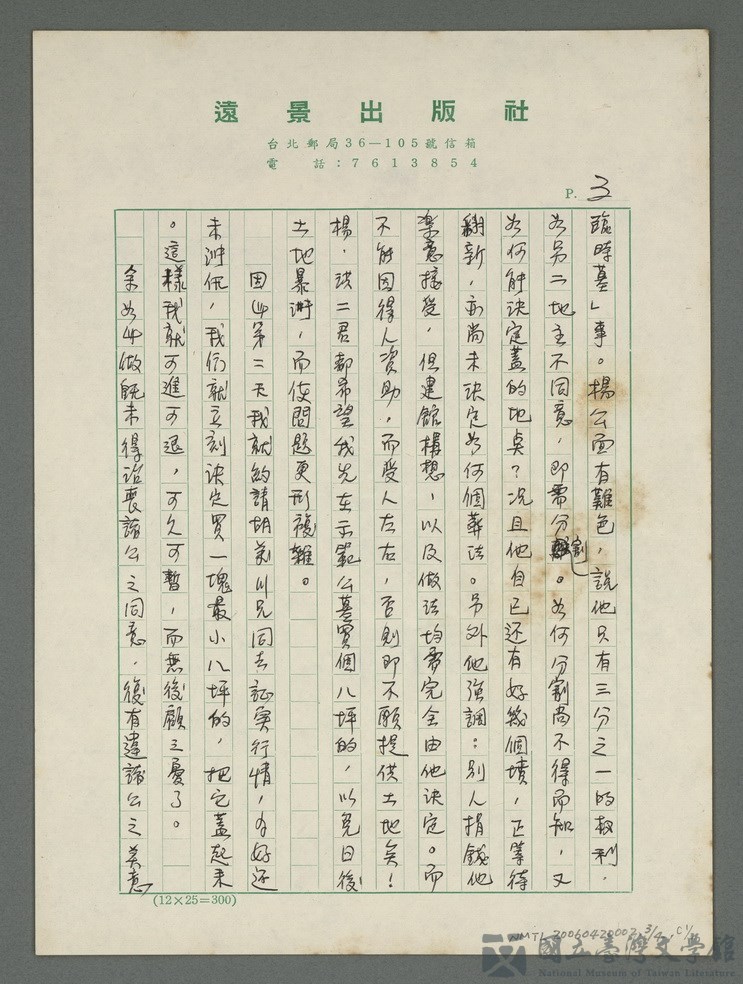 遠景出版社
台北郵局36—105號信箱
電話:7613854
P. 3
臨時墓」事。楊公面有難色,說他只有三分之一的权利,
如另二地主不同意,即需分割。如何分割尚不得而知,又
如何能決定蓋的地点?况且他自已还有好幾個墳,正等待
翻新,亦尚未決定如何個葬法。另外他強調:別人捐錢他
楽意接受,但建館構想,以及做法均需完全由他決定。而
不能因得人資助,而受人左右,否則即不願提供土地矣!
楊,洪二君都希望我先在示範公墓買個八坪的,以免日後
土地暴漲,而使問題更形複雜。
因此第二天我就約請胡萬川兄同去証実行情,幸好还
未沖低,我們就立刻決定買一塊最小八坪的,把它蓋起来
。這樣我就可進可退,可久可暫,而無後顧之憂了。
余如此做既未得治喪諸公之同意,復有違諸公之美意
(12×25=300)
NMTL 20060420002
國立臺灣文學館
National Museum of Taiwan Literature